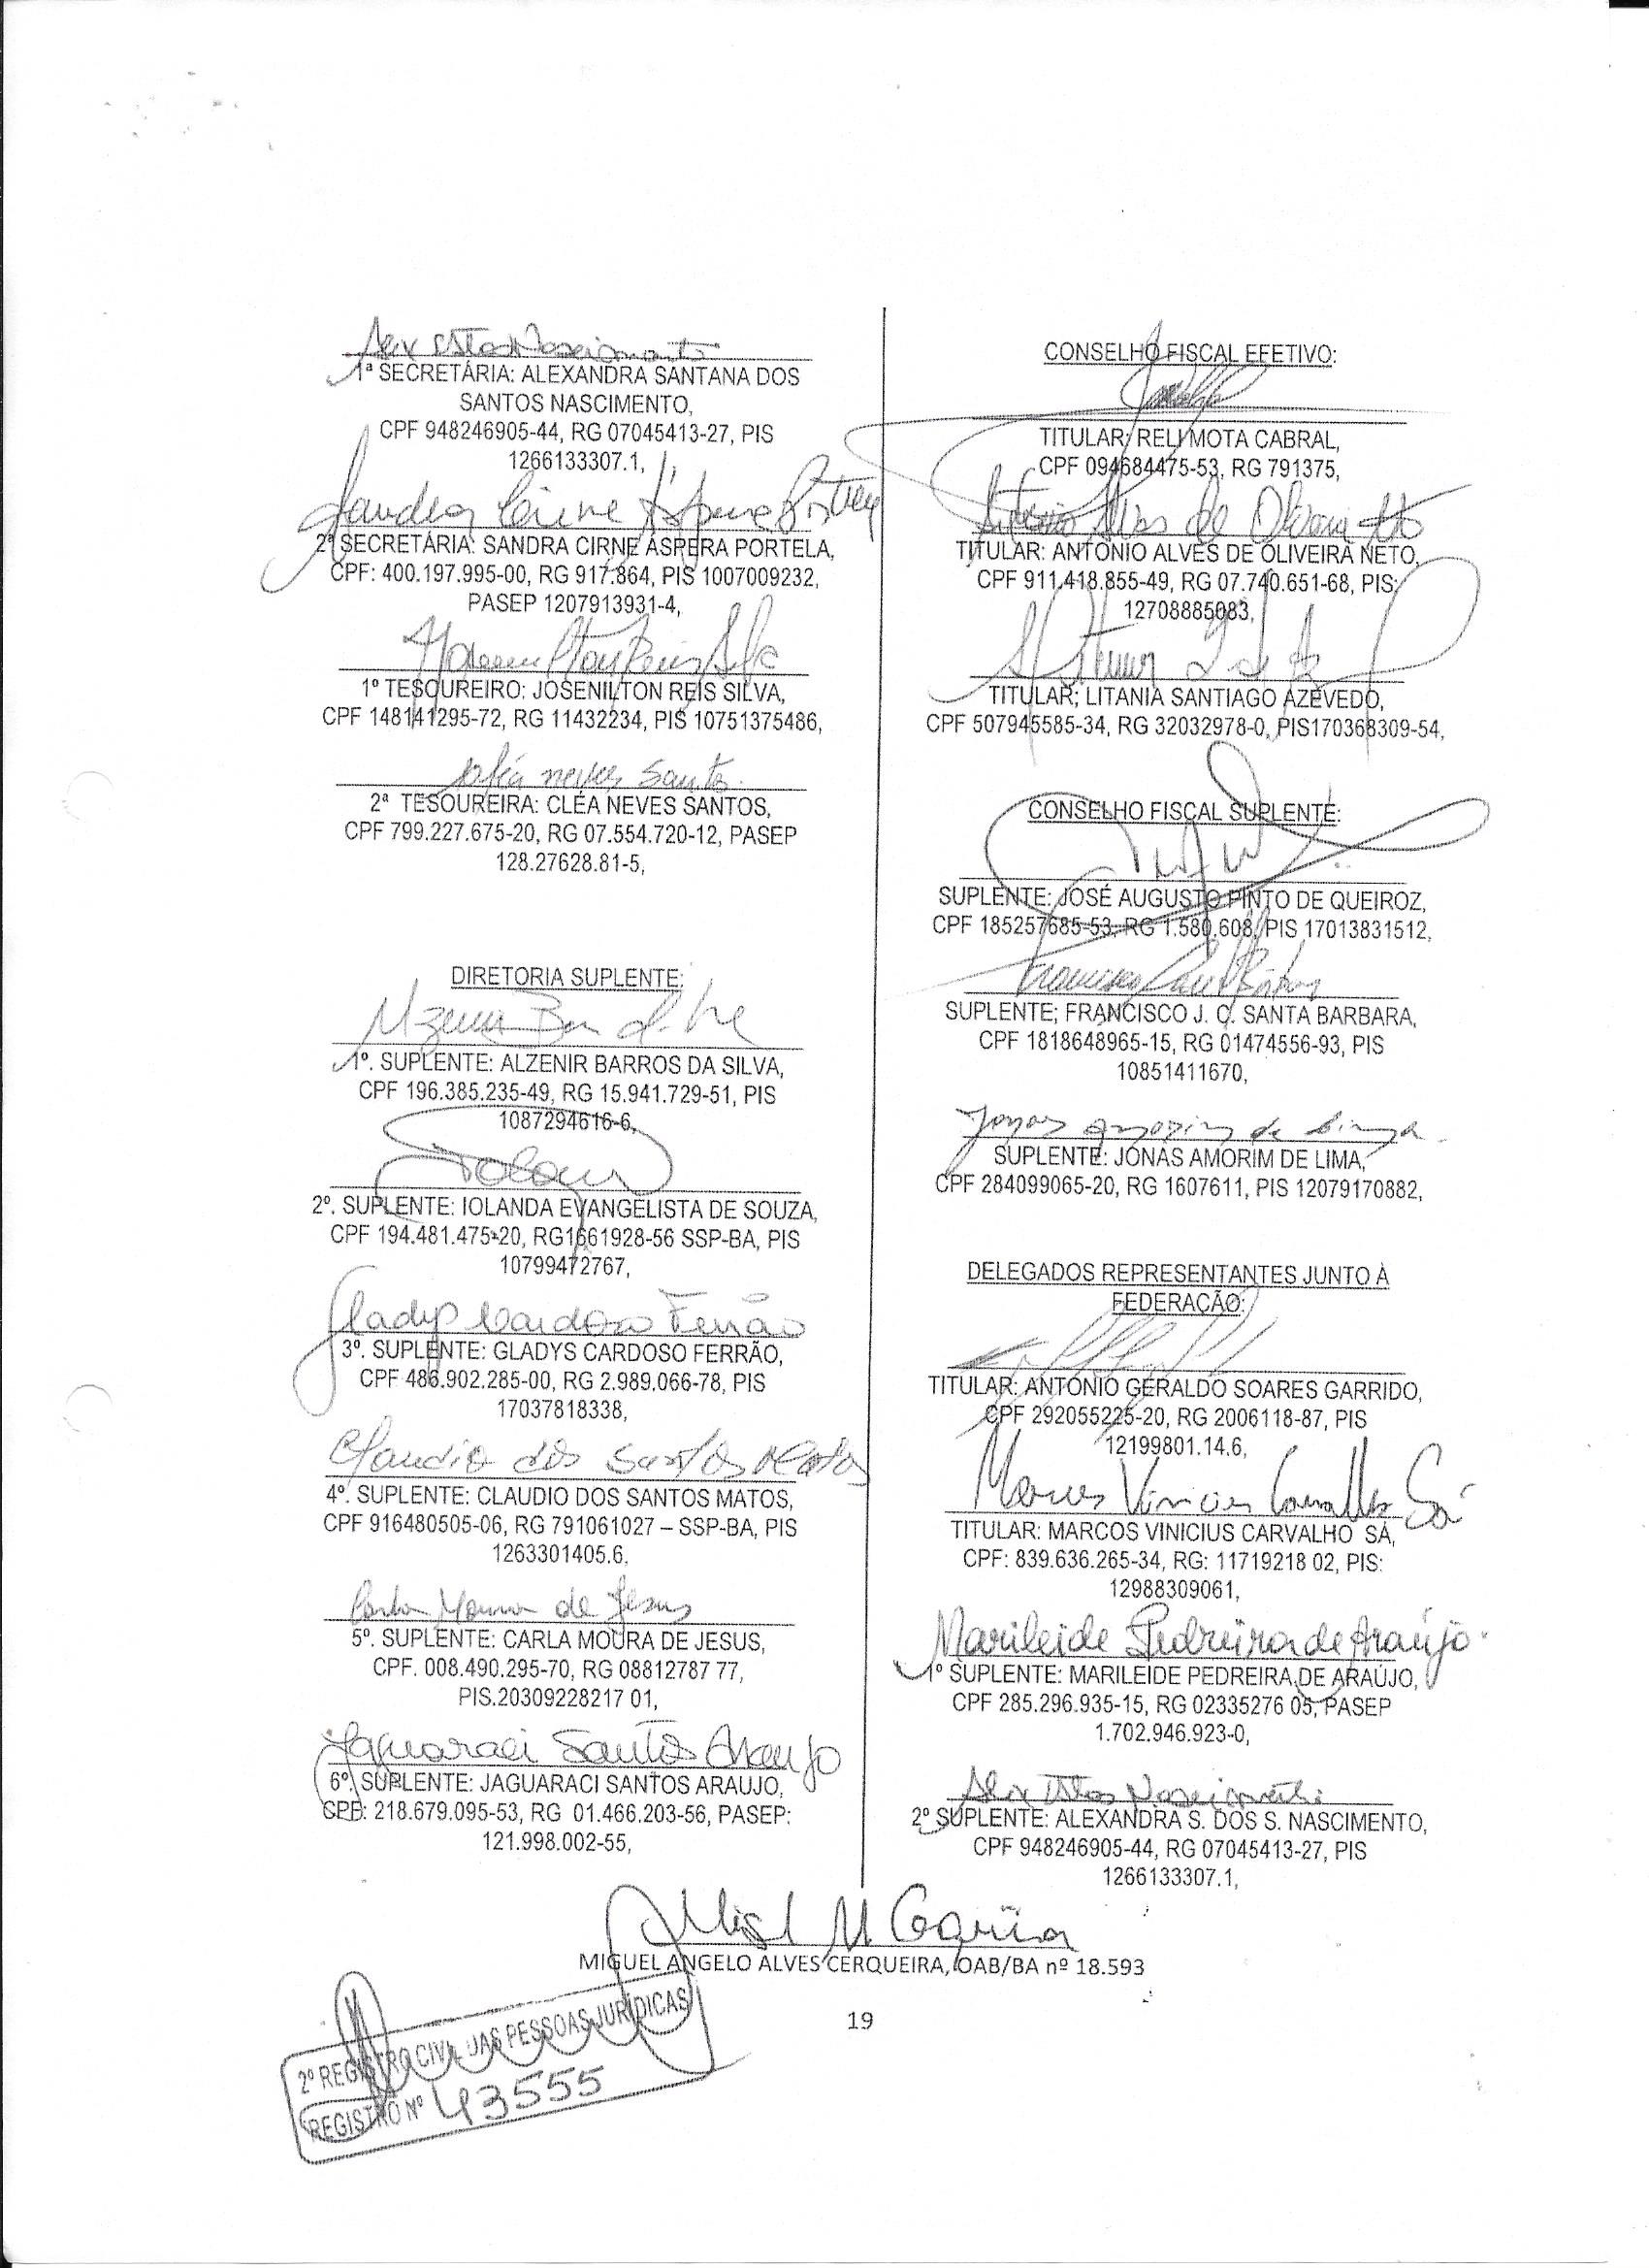 1ª SECRETÁRIA: ALEXANDRA SANTANA DOS
SANTOS NASCIMENTO,
CPF 948246905-44, RG 07045413-27, PIS
1266133307.1,
Sandra Cirne Aspera Portela
2ª SECRETÁRIA: SANDRA CIRNE ASPERA PORTELA,
CPF: 400.197.995-00, RG 917.864, PIS 1007009232,
PASEP 1207913931-4,
1º TESOUREIRO: JOSENILTON REIS SILVA,
CPF 148141295-72, RG 11432234, PIS 10751375486,
Cléa neves Santos
2ª TESOUREIRA: CLÉA NEVES SANTOS,
CPF 799.227.675-20, RG 07.554.720-12, PASEP
128.27628.81-5,
DIRETORIA SUPLENTE:
1º. SUPLENTE: ALZENIR BARROS DA SILVA,
CPF 196.385.235-49, RG 15.941.729-51, PIS
1087294616-6,
2º. SUPLENTE: IOLANDA EVANGELISTA DE SOUZA,
CPF 194.481.475-20, RG1661928-56 SSP-BA, PIS
10799472767,
Gladys Cardoso Ferrão
3º. SUPLENTE: GLADYS CARDOSO FERRÃO,
CPF 486.902.285-00, RG 2.989.066-78, PIS
17037818338,
Claudio dos Santos Matos
4º. SUPLENTE: CLAUDIO DOS SANTOS MATOS,
CPF 916480505-06, RG 791061027 – SSP-BA, PIS
1263301405.6,
Carla Moura de Jesus
5º. SUPLENTE: CARLA MOURA DE JESUS,
CPF. 008.490.295-70, RG 08812787 77,
PIS.20309228217 01,
Jaguaraci Santos Araujo
6º. SUPLENTE: JAGUARACI SANTOS ARAUJO,
CPF: 218.679.095-53, RG 01.466.203-56, PASEP:
121.998.002-55,
CONSELHO FISCAL EFETIVO:
TITULAR: RELI MOTA CABRAL,
CPF 094684475-53, RG 791375,
Antonio Alves de Oliveira Neto
TITULAR: ANTONIO ALVES DE OLIVEIRA NETO,
CPF 911.418.855-49, RG 07.740.651-68, PIS:
12708885083,
TITULAR; LITANIA SANTIAGO AZEVEDO,
CPF 507945585-34, RG 32032978-0, PIS170368309-54,
CONSELHO FISCAL SUPLENTE:
SUPLENTE: JOSÉ AUGUSTO PINTO DE QUEIROZ,
CPF 185257685-53, RG 1.580.608, PIS 17013831512,
SUPLENTE; FRANCISCO J. C. SANTA BARBARA,
CPF 1818648965-15, RG 01474556-93, PIS
10851411670,
Jonas Amorim de Lima
SUPLENTE: JONAS AMORIM DE LIMA,
CPF 284099065-20, RG 1607611, PIS 12079170882,
DELEGADOS REPRESENTANTES JUNTO À
FEDERAÇÃO:
TITULAR: ANTONIO GERALDO SOARES GARRIDO,
CPF 292055225-20, RG 2006118-87, PIS
12199801.14.6,
Marcos Vinicius Carvalho Sá
TITULAR: MARCOS VINICIUS CARVALHO SÁ,
CPF: 839.636.265-34, RG: 11719218 02, PIS:
12988309061,
Marileide Pedreira de Araújo
1º SUPLENTE: MARILEIDE PEDREIRA DE ARAÚJO,
CPF 285.296.935-15, RG 02335276 05, PASEP
1.702.946.923-0,
2º SUPLENTE: ALEXANDRA S. DOS S. NASCIMENTO,
CPF 948246905-44, RG 07045413-27, PIS
1266133307.1,
MIGUEL ANGELO ALVES CERQUEIRA, OAB/BA nº 18.593
19
2º REGISTRO CIVIL DAS PESSOAS JURÍDICAS
REGISTRO Nº 43555